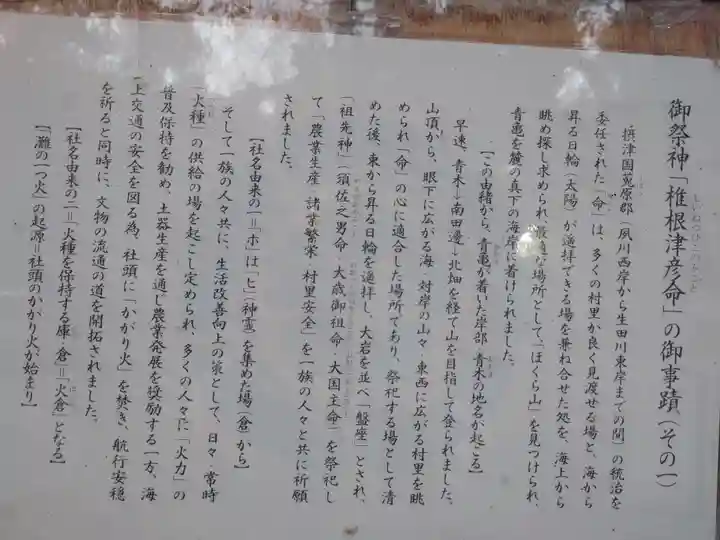 御祭神「椎根津彦命」の御事蹟(その一)
しいねつひこのみこと
摂津国莵原郡(夙川西岸から生田川東岸までの間)の統治を
委任された「命」は、多くの村里か良く見渡せる場と、海から
昇る日輪(太陽)が遥拝できる場を兼ね合せた処を、海上から
眺め探し求められ、最適な場所として、「ほくら山」を見つけられ、
青亀を麓の真下の海岸に着けられました。
【この由緒から、青亀が着いた岸部、青木の地名が起こる】
早速、青木→南田邊→北畑を経て山を目指して登られました。
山頂から、眼下に広がる海・対岸の山々・東西に広がる村里を眺
められ「命」の心に適合した場所であり、祭祀する場として清
めた後、東から昇る日輪を遥拝し、大岩を並べ「盤座」とされ、
「祖先神」(須佐之男命・大歳御祖命・大国主命)を祭祀し
て「農業生産・諸業繁栄・村里安全」を一族の人々と共に祈願
されました。
【社名由来の一=「ホ」は「ヒ」(神霊)を集めた場(倉)から】
そして一族の人々共に、生活改善向上の策として、日々・常時
「火種」の供給の場を起こし定められ、多くの人々に「火力」の
普及保持を勧め、土器生産を通じ農業発展を奨励する一方、海
上交通の安全を図る為、社頭に「かがり火」を焚き、航行安穏
を祈ると同時に、文物の流通の道を開拓されました。
【社名由来の二=火種を保持する庫・倉=「火倉」となる】
【「灘の一つ火」の起源=社頭のかがり火が始まり】